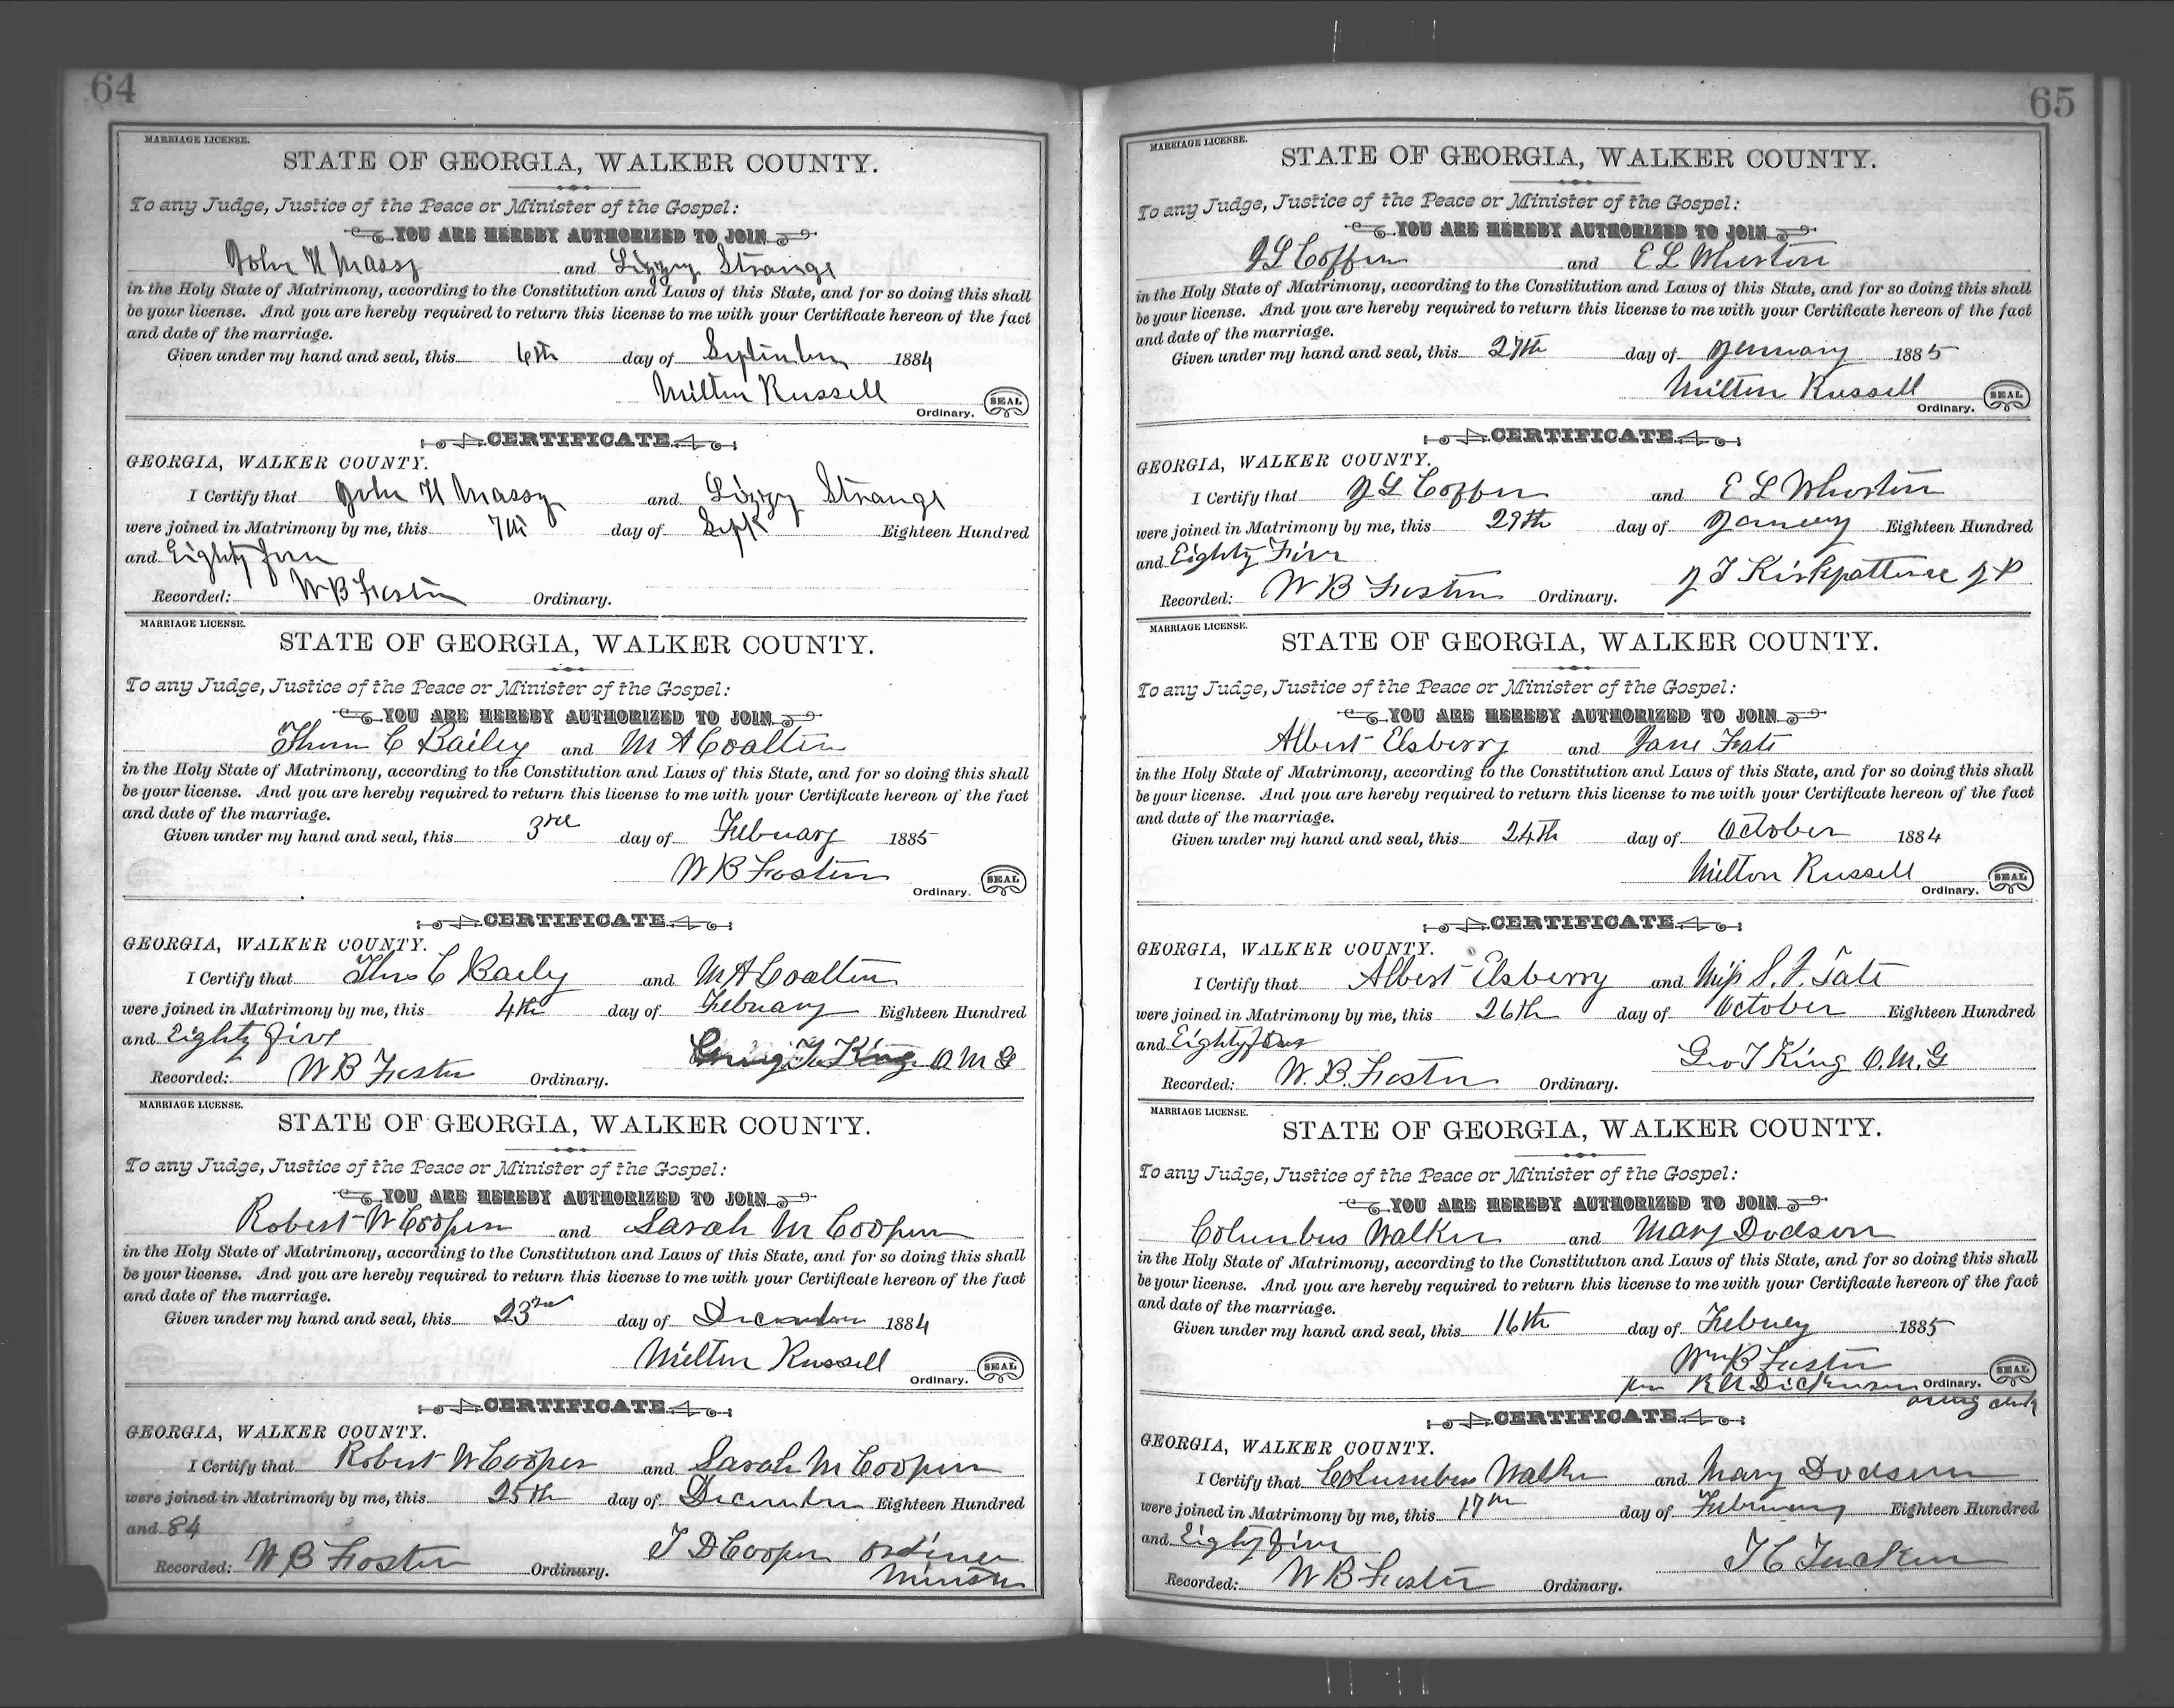 64
MARRIAGE LICENSE.
STATE OF GEORGIA, WALKER COUNTY.
To any Judge, Justice of the Peace or Minister of the Gospel:
YOU ARE HEREBY AUTHORIZED TO JOIN
John H Massy and Lizzy Strange
in the Holy State of Matrimony, according to the Constitution and Laws of this State, and for so doing this shall
be your license. And you are hereby required to return this license to me with your Certificate hereon of the fact
and date of the marriage.
Given under my hand and seal, this 6th day of September 1884
Milton Russell
Ordinary. SEAL
CERTIFICATE
GEORGIA, WALKER COUNTY.
I Certify that John H Massy and Lizzy Strange
were joined in Matrimony by me, this 7th day of Sept Eighteen Hundred
and Eighty four
Recorded: W B Foster Ordinary.
MARRIAGE LICENSE.
STATE OF GEORGIA, WALKER COUNTY.
To any Judge, Justice of the Peace or Minister of the Gospel:
YOU ARE HEREBY AUTHORIZED TO JOIN
Thos C Bailey and M A Coalten
in the Holy State of Matrimony, according to the Constitution and Laws of this State, and for so doing this shall
be your license. And you are hereby required to return this license to me with your Certificate hereon of the fact
and date of the marriage.
Given under my hand and seal, this 3rd day of February 1885
W B Foster
Ordinary. SEAL
CERTIFICATE
GEORGIA, WALKER COUNTY.
I Certify that Thos C Baily and M A Coalten
were joined in Matrimony by me, this 4th day of February Eighteen Hundred
and Eighty five
King O M G
Recorded: W B Foster Ordinary.
MARRIAGE LICENSE.
STATE OF GEORGIA, WALKER COUNTY.
To any Judge, Justice of the Peace or Minister of the Gospel:
YOU ARE HEREBY AUTHORIZED TO JOIN
Robert W Cooper and Sarah M Cooper
in the Holy State of Matrimony, according to the Constitution and Laws of this State, and for so doing this shall
be your license. And you are hereby required to return this license to me with your Certificate hereon of the fact
and date of the marriage.
Given under my hand and seal, this 23rd day of December 1884
Milton Russell
Ordinary. SEAL
CERTIFICATE
GEORGIA, WALKER COUNTY.
I Certify that Robert W Cooper and Sarah M Cooper
were joined in Matrimony by me, this 25th day of December Eighteen Hundred
and 84
T D Cooper
Recorded: W B Foster Ordinary.
65
MARRIAGE LICENSE.
STATE OF GEORGIA, WALKER COUNTY.
To any Judge, Justice of the Peace or Minister of the Gospel:
YOU ARE HEREBY AUTHORIZED TO JOIN
J L Coffen and E L Whorton
in the Holy State of Matrimony, according to the Constitution and Laws of this State, and for so doing this shall
be your license. And you are hereby required to return this license to me with your Certificate hereon of the fact
and date of the marriage.
Given under my hand and seal, this 27th day of January 1885
Milton Russell
Ordinary. SEAL
CERTIFICATE
GEORGIA, WALKER COUNTY.
I Certify that J L Coffen and E L Whorton
were joined in Matrimony by me, this 29th day of January Eighteen Hundred
and Eighty Five
J T Kirkpatrick J P
Recorded: W B Foster Ordinary.
MARRIAGE LICENSE.
STATE OF GEORGIA, WALKER COUNTY.
To any Judge, Justice of the Peace or Minister of the Gospel:
YOU ARE HEREBY AUTHORIZED TO JOIN
Albert Elsberry and Jane Tate
in the Holy State of Matrimony, according to the Constitution and Laws of this State, and for so doing this shall
be your license. And you are hereby required to return this license to me with your Certificate hereon of the fact
and date of the marriage.
Given under my hand and seal, this 24th day of October 1884
Milton Russell
Ordinary. SEAL
CERTIFICATE
GEORGIA, WALKER COUNTY.
I Certify that Albert Elsberry and Miss S. J. Tate
were joined in Matrimony by me, this 26th day of October Eighteen Hundred
and Eighty four
Geo T King O. M. G
Recorded: W. B. Foster Ordinary.
MARRIAGE LICENSE.
STATE OF GEORGIA, WALKER COUNTY.
To any Judge, Justice of the Peace or Minister of the Gospel:
YOU ARE HEREBY AUTHORIZED TO JOIN
Columbus Walker and Mary Dodson
in the Holy State of Matrimony, according to the Constitution and Laws of this State, and for so doing this shall
be your license. And you are hereby required to return this license to me with your Certificate hereon of the fact
and date of the marriage.
Given under my hand and seal, this 16th day of Febuey 1885
Wm B Foster
per R N Dickerson Ordinary. SEAL
acting clerk
CERTIFICATE
GEORGIA, WALKER COUNTY.
I Certify that Columbus Walker and Mary Dodson
were joined in Matrimony by me, this 17th day of February Eighteen Hundred
and Eighty five
T C Tucker
Recorded: W B Foster Ordinary.